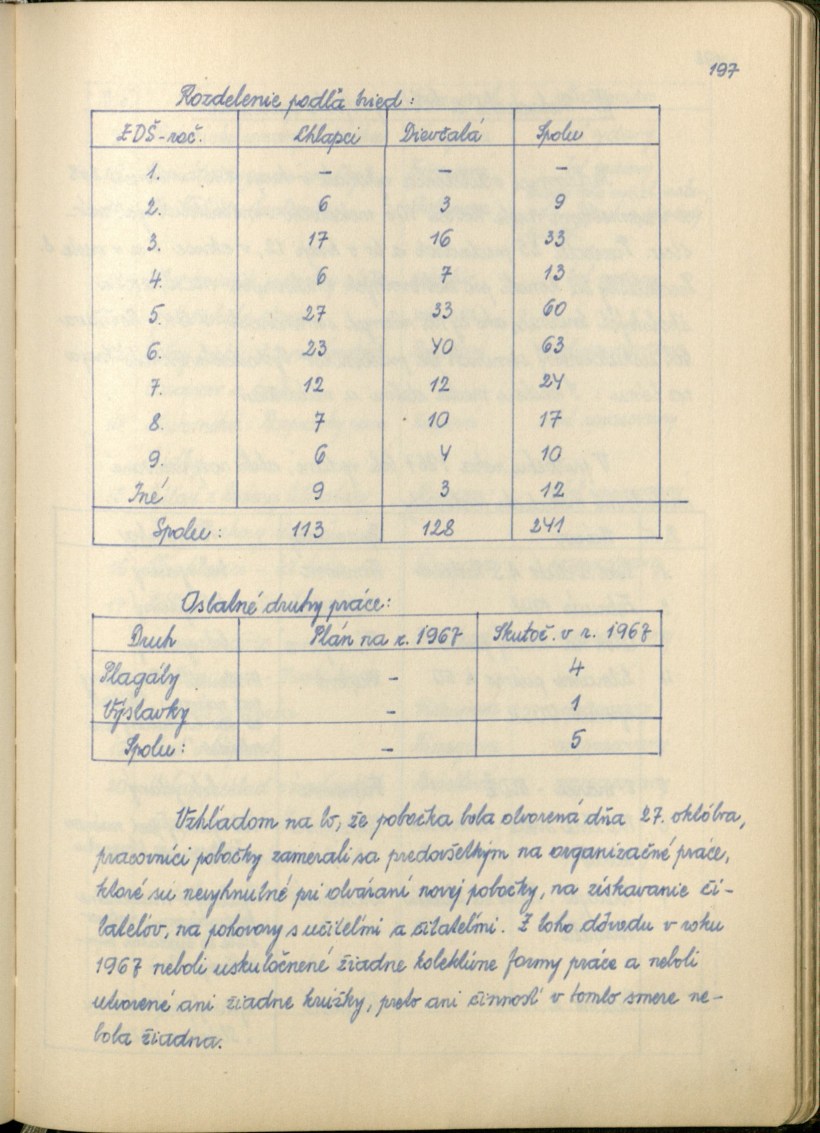 197
Rozdelenie podľa tried:
ZDŠ-roč. Chlapci Dievčatá Spolu
1. – – –
2. 6 3 9
3. 17 16 33
4. 6 7 13
5. 27 33 60
6. 23 40 63
7. 12 12 24
8. 7 10 17
9. 6 4 10
Iné 9 3 12
Spolu: 113 128 241
Ostatné druhy práce:
Druh Plán na r. 1967 Skutoč. v r. 1967
Plagáty – 4
Výstavky – 1
Spolu: – 5
Vzhľadom na to, že pobočka bola otvorená dňa 27. októbra,
pracovníci pobočky zamerali sa predovšetkým na organizačné práce,
ktoré su nevyhnutné pri otváraní novej pobočky, na získavanie či-
tateľov, na pohovory s učiteľmi a čitateľmi. Z toho dôvodu v roku
1967 neboli uskutočnené žiadne kolektívne formy práce a neboli
utvorené ani žiadne krúžky, preto ani činnosť v tomto smere ne-
bola žiadna.